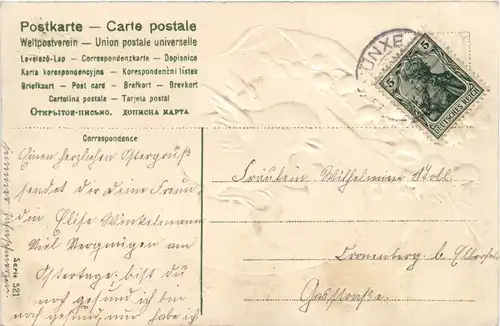 Postkarte — Carte postale
Weltpostverein — Union postale universelle
Levelező-Lap — Correspondenzkarte — Dopisnica
Karta korespondencyjna — Korespondenční lístek
Briefkaart — Post card — Brefkort — Brevkort
Cartolina postale — Tarjeta postal
Открытое-письмо. дописна карта
5
5
DEUTSCHES REICH
ÜNXE
Correspondence
Einen herzlichen Ostergruß
sendet dir Deine Freun
din Elise Winkelmann
Viel Vergnügen am
Ostertage. bist du
noch gesund ich bin
noch gesund, nur habe ich
immer
Serie 521
Fräulein Wilhelmine Noll
Cronenberg b. Elberfeld
Gasstraße.